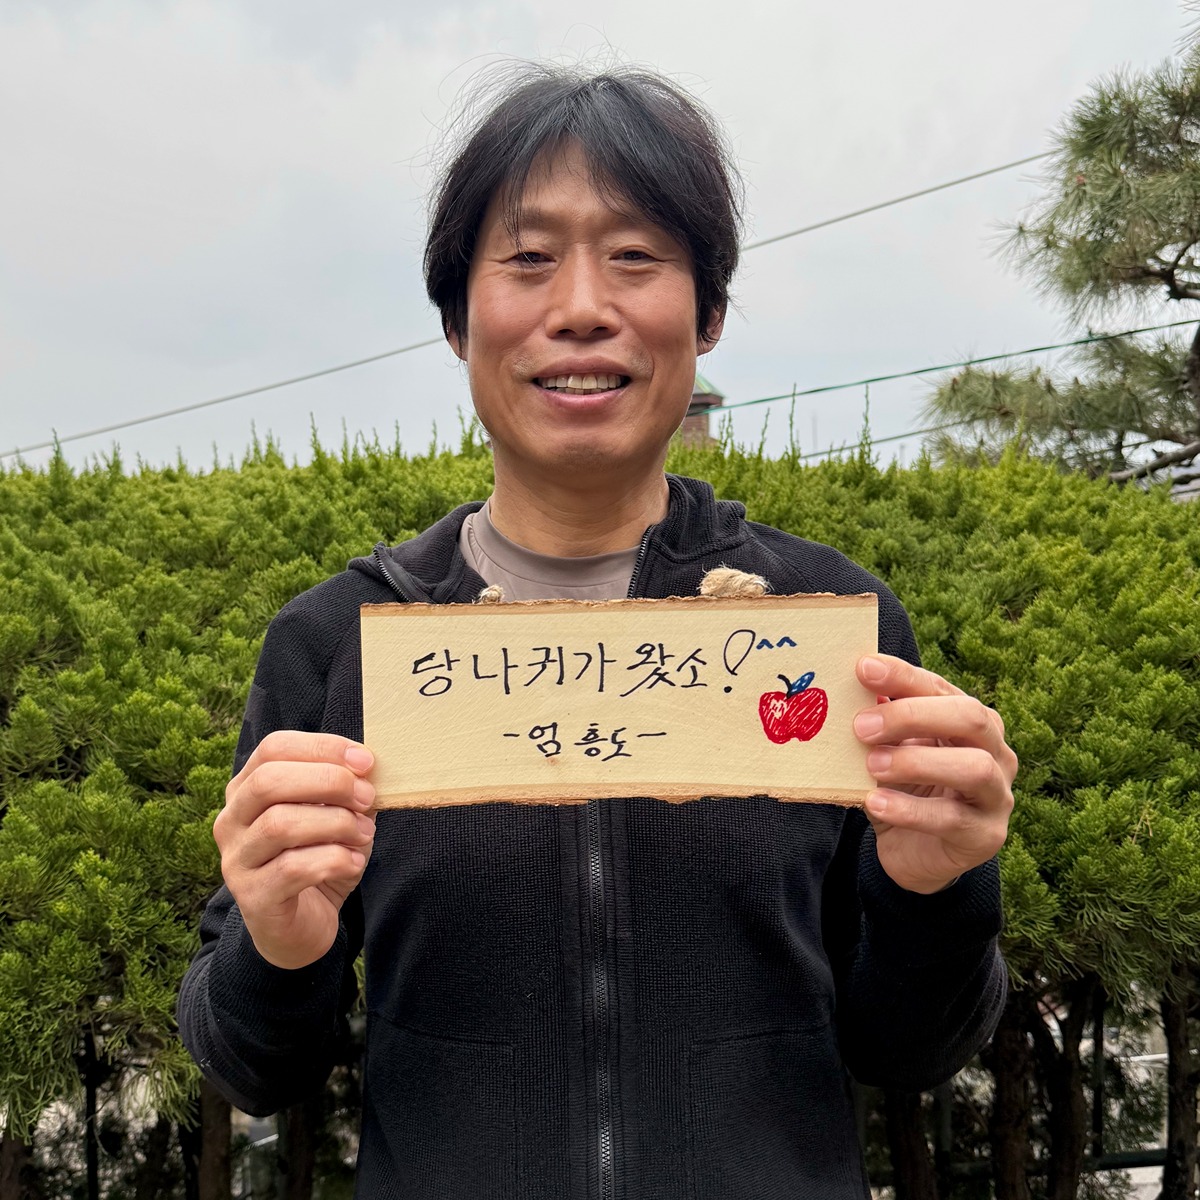 당나귀가 왔소! ^^
-엄흥도-